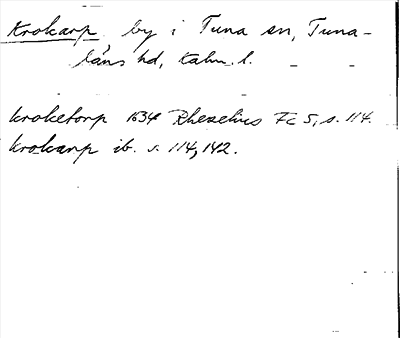 Krokarp by i Tuna sn, Tuna-
läns hd, Kalm. l.
kroketorp 1634 Rhezelius Fc 5, s. 114.
krokarp ib. s. 114, 142.